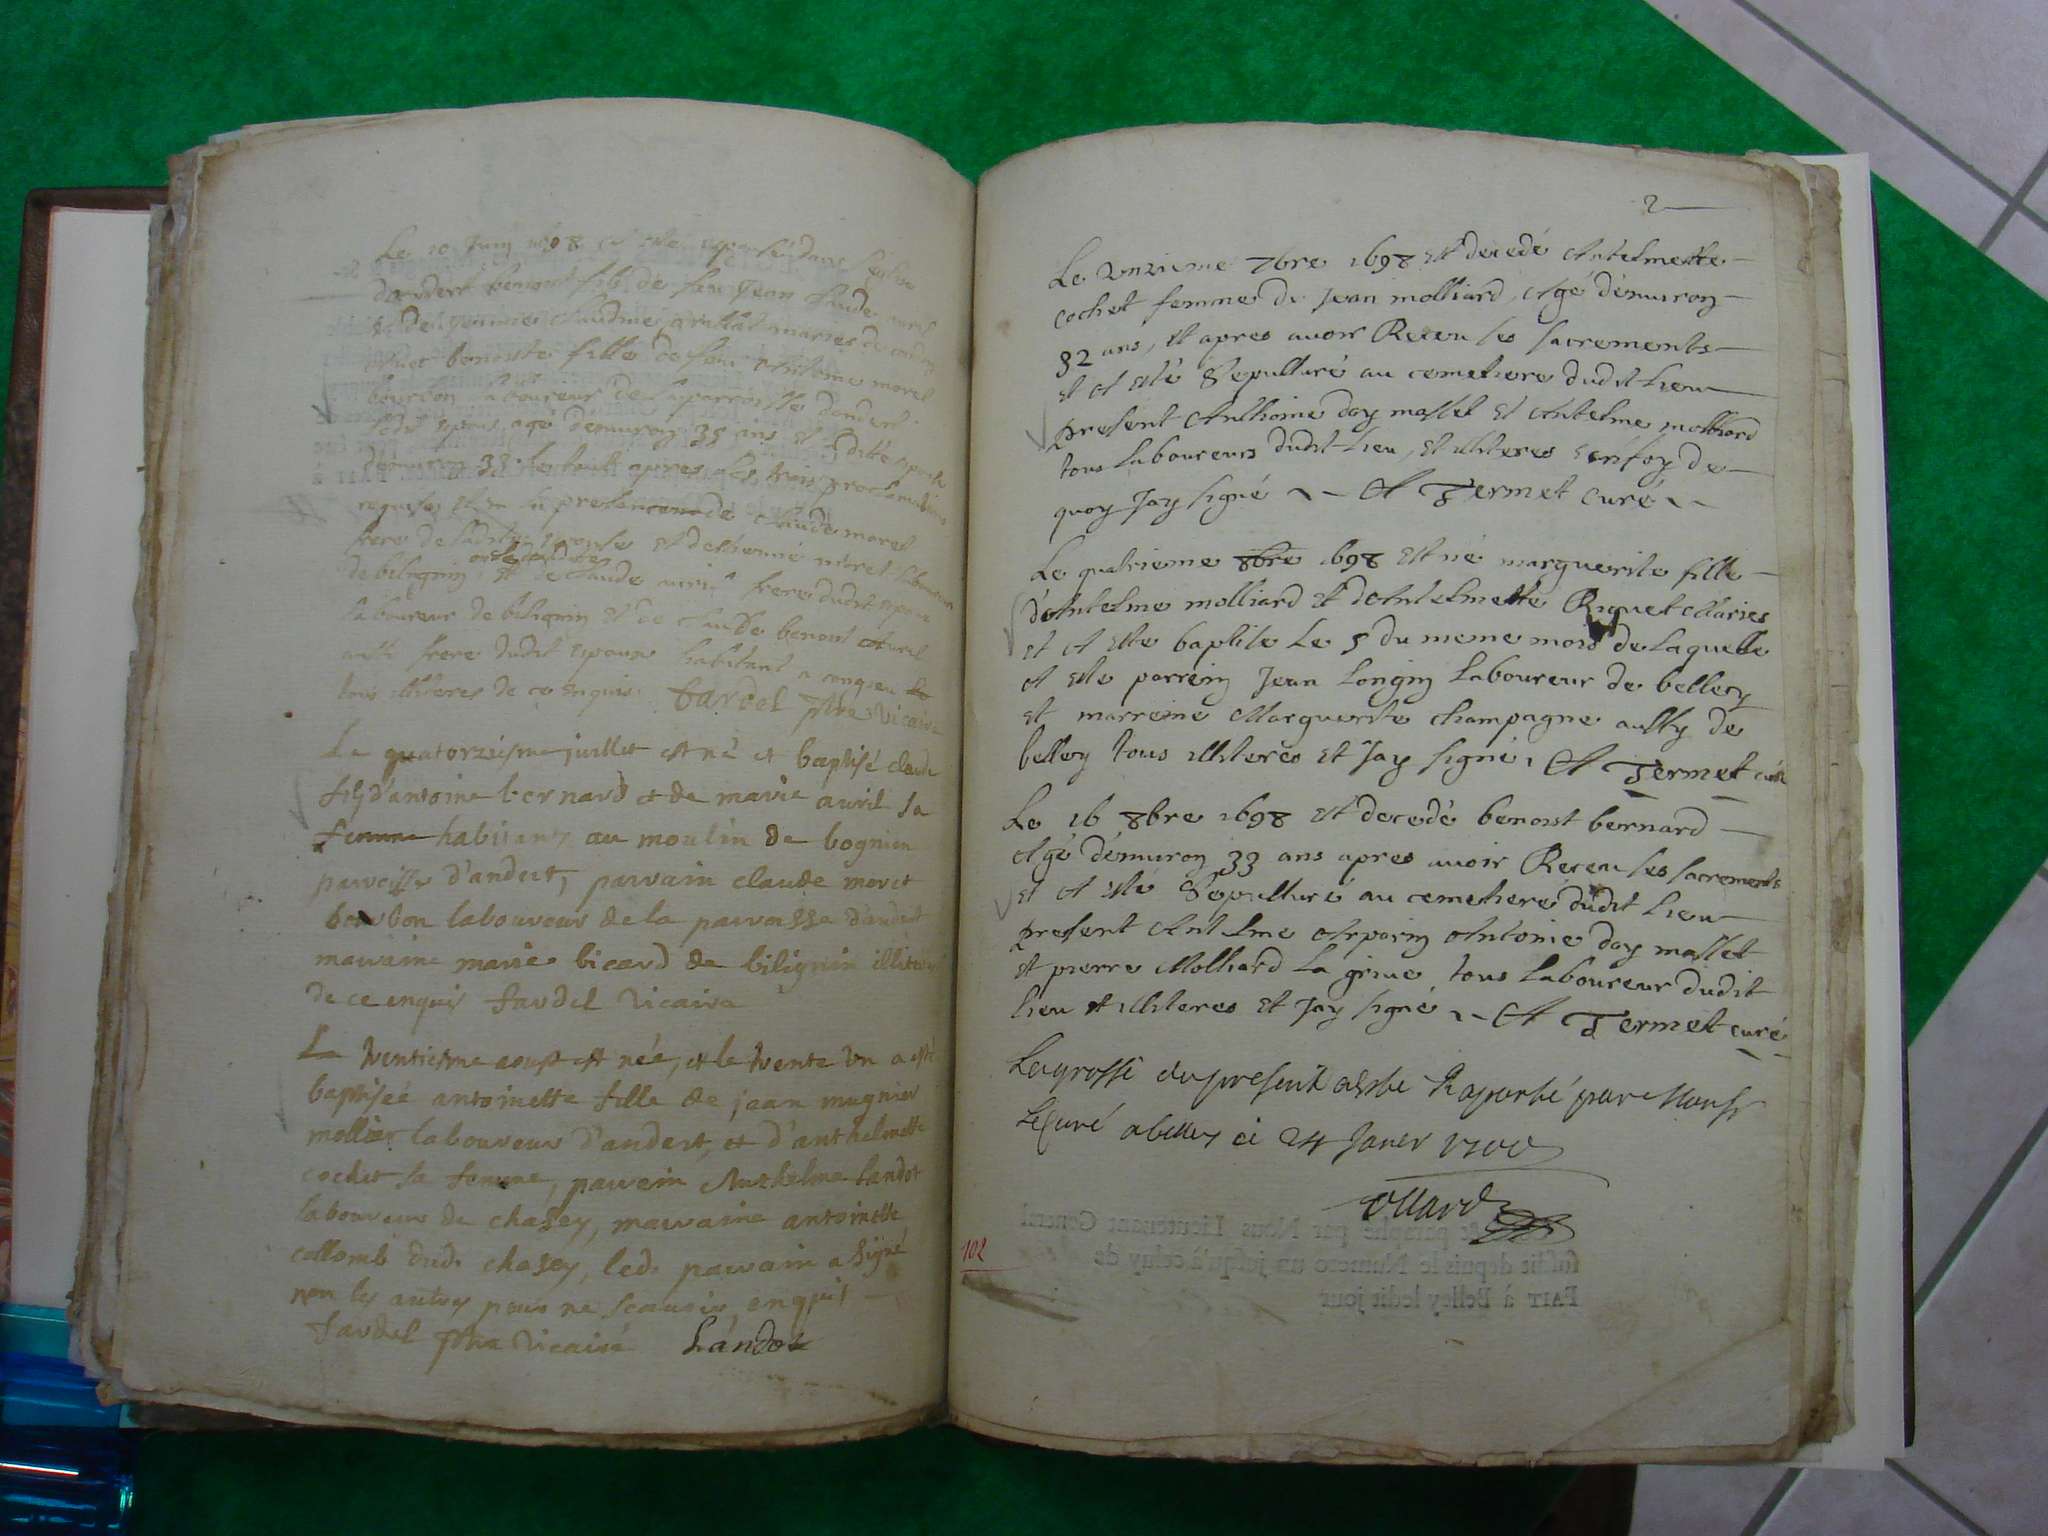 Le 10 Juin 1698
dandert benoist fils de feu Jean Claude avril
benoiste fille de feu Anthoine moret
bourbon laboureur de la parroisse dandert
agé denuiron 35 ans et ladite epouse
denuiron 33 le tout apres les trois proclamations
requises et en la presence de Claude moret
frere de ladite epouse et destienne moret laboureur
de bilignin et de Claude avril frere dudit epoux
laboureur de bilignin et de Claude benoist Avril
aussi frere dudit epoux habitant a congieu
tous illiteres de ce enquis fardel ptre vicaire
Le quatorziesme juillet est né et baptisé claude
fils d'antoine bernard et de marie avril sa
femme habitans au moulin de bognien
parroisse d'andert, parrain claude moret
bourbon laboureur de la parroisse d'andert
marraine marie bicard de bilignin illiteres
de ce enquis fardel vicaire
Le trentiesme aoust est née, et le trente un a esté
baptisée antoinette fille de jean mugnier
mollier laboureur d'andert, et d'anthelmette
cochet sa femme, parrein Anthelme landot
laboureur de chasey, marraine antoinette
collomb dud. chasey, led. parrain a signé
non les autres pour ne scauoir enquis
fardel ptre vicaire Landot
2
Le unzieme 7bre 1698 est decedé Antelmette
cochet femme de Jean molliard, Agé denuiron
32 ans, et apres auoir Receu les sacrements
et A esté Sepulturé au cemetiere dudit lieu
present Anthoine day masset et Antelme molliard
tous laboureurs dudit lieu, et illiteres enfoy de
quoy Jay signé A Termet curé
Le quatrieme 8bre 1698 est né marguerite fille
d'Antelme molliard et dAntelmette Riquet Maries
et A este baptise le 5 du meme mois de laquelle
A este parrein Jean Longin laboureur de belley
et marreine Marguerite champagne aussy de
belley tous illiteres et Jay signé, A Termet curé
Le 16 8bre 1698 est decedé benoist bernard
Agé denuiron 33 ans apres auoir Receu les sacrements
et A esté Sepulturé au cemetiere dudit lieu
present Antelme Arparin Antoine day masset
et pierre Molliard la griue tous laboureur dudit
lieu et illiteres et Jay signé A Termet curé
La grosse du present a esté Raportée par Monsr
le Curé a belley ce 24 Janer 1700
ollard
102
paraphé par Nous Lieutenant General
susdit depuis le Numero un jusqu'à celuy de
FAIT à Belley ledit jour